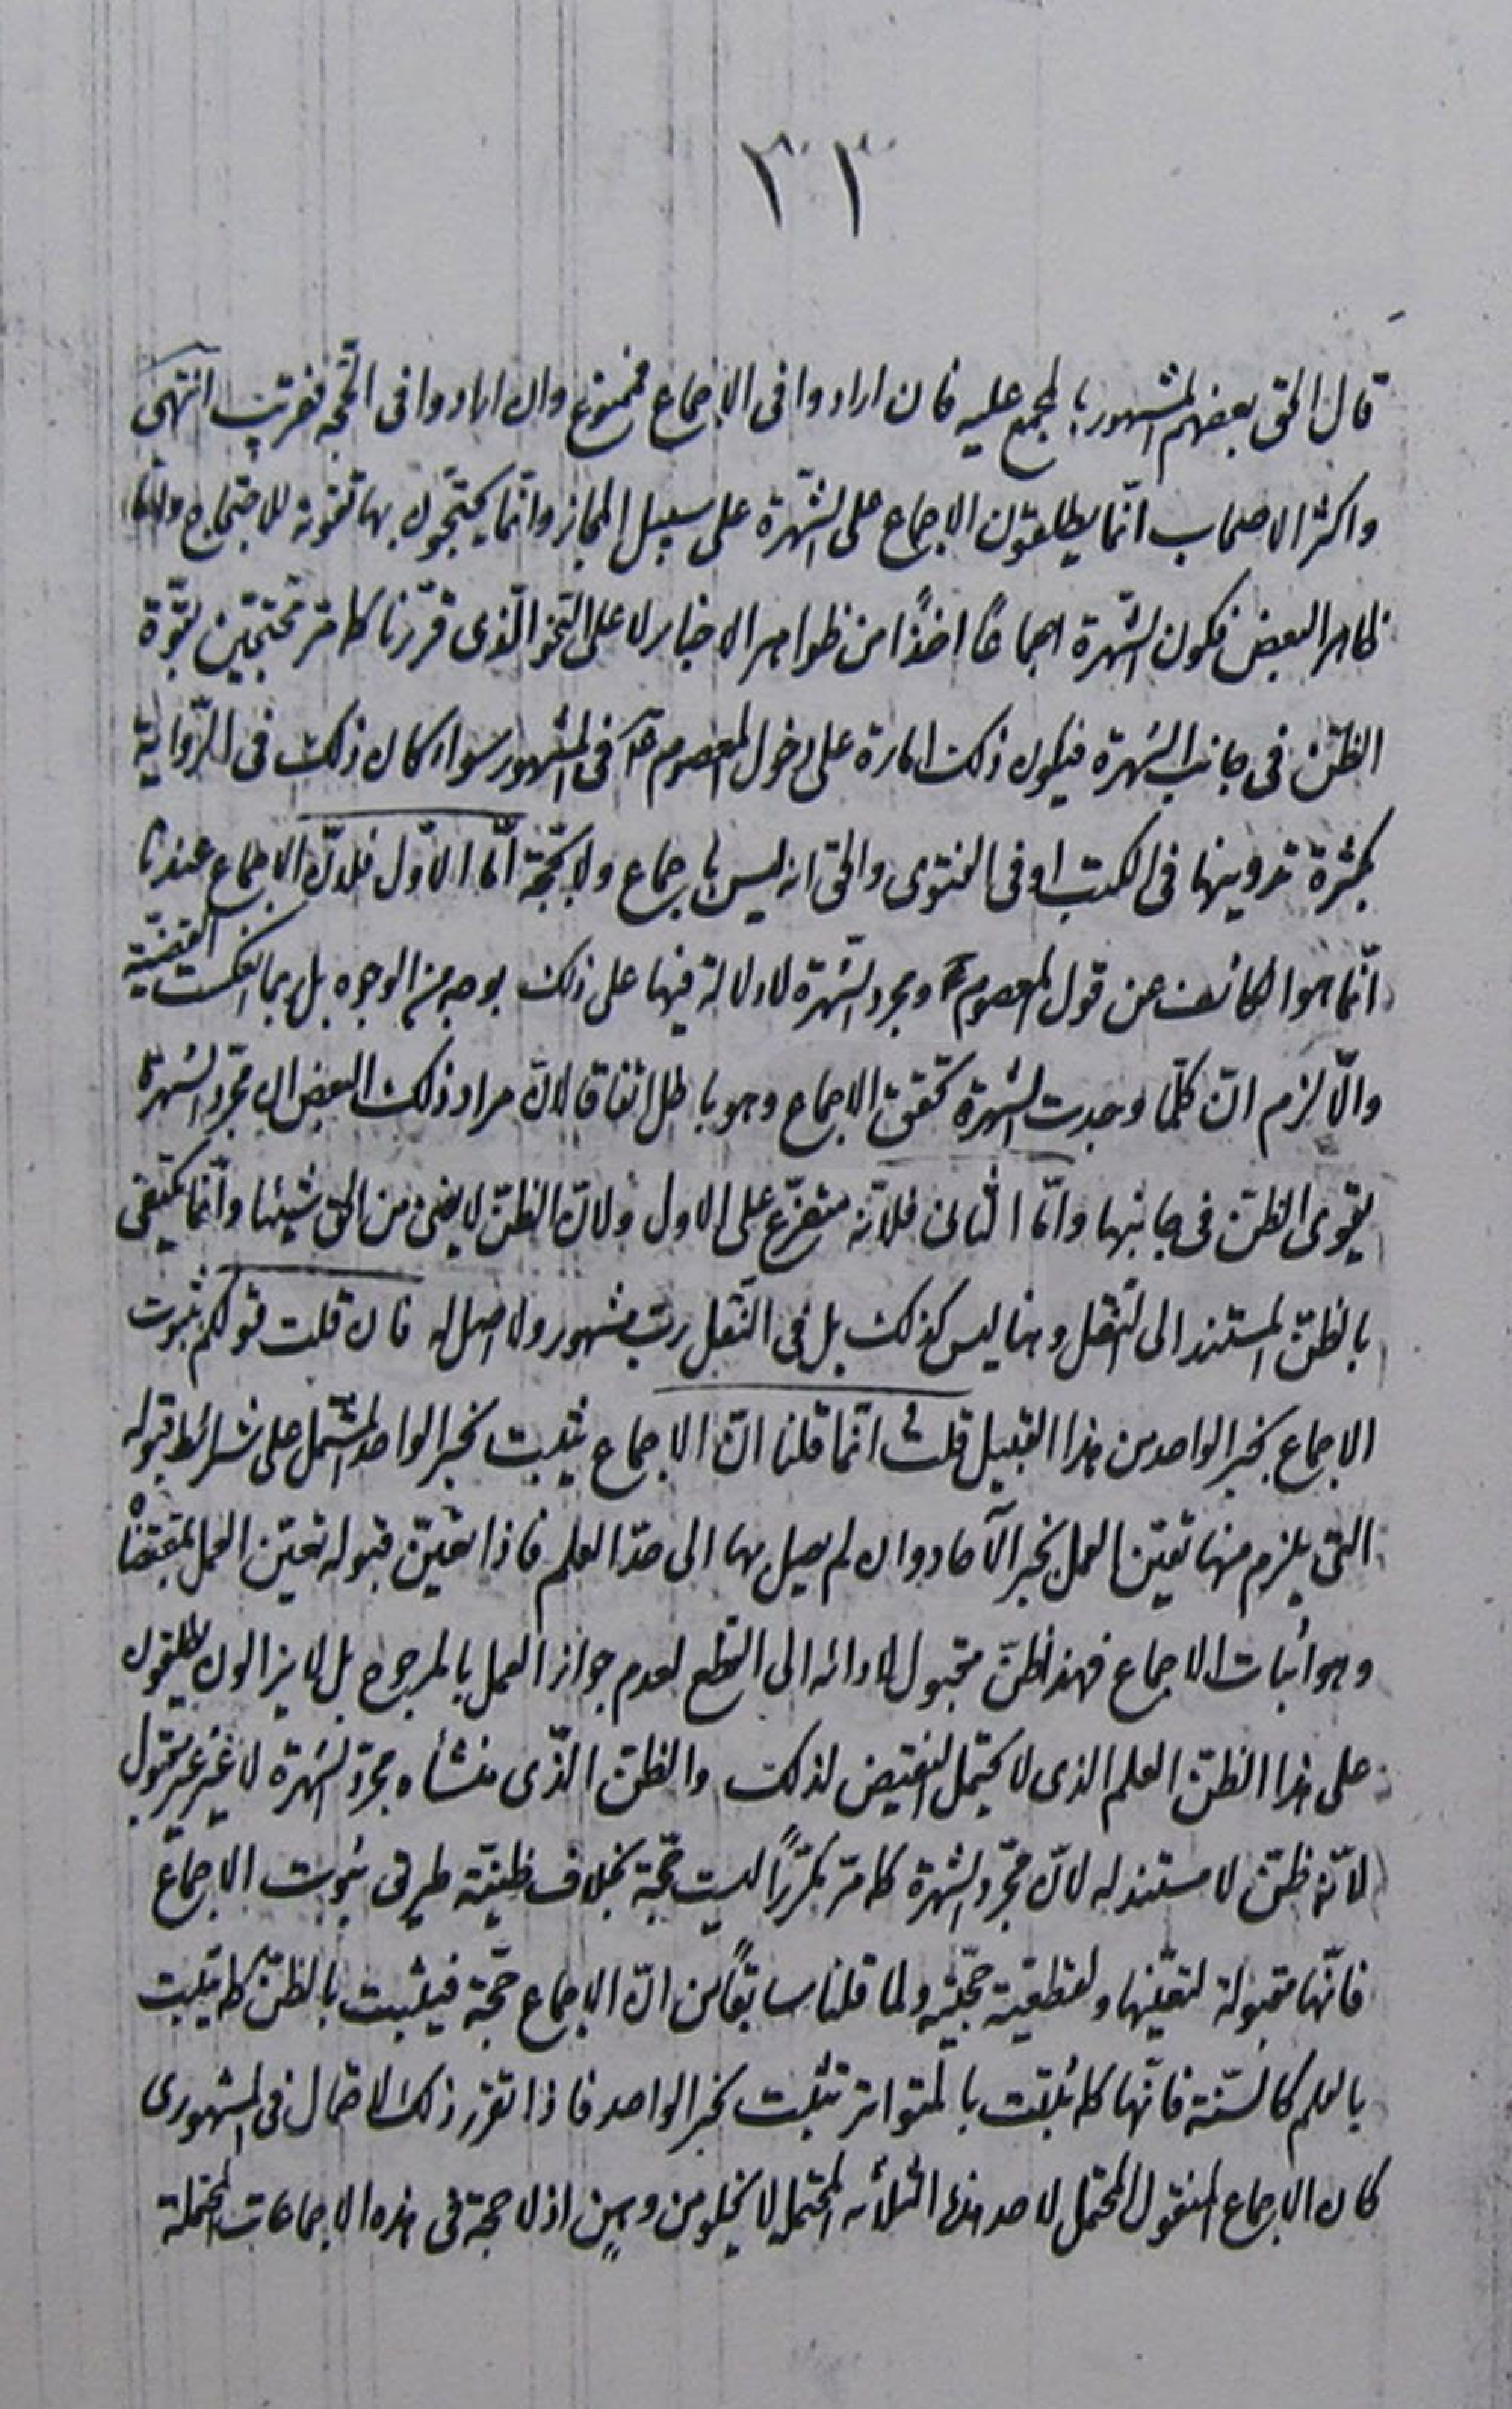 ٣٣
قال الحق بعضهم المشهور بالمجمع عليه فان ارادوا فى الاجماع فممنوع وان ارادوا فى الحجة فقريب انتهى
واكثر الاصحاب انّما يطلقون الاجماع على الشّهرة على سبيل المجاز وانّما يحتجّون بها تقوية للاحتجاج
ظاهر البعض فكون الشّهرة اجماعًا اخذًا من ظواهر الاخبار لا على النّحو الّذى قرّرنا كما مرّ محتجّين بقوّة
الظنّ فى جانب الشهرة فيكون ذلك امارة على دخول المعصوم عم فى المشهور سواء كان ذلك فى الرّواية
بكثرة تدوينها فى الكتب او فى الفتوى والحق انه ليس باجماع ولا بحجّة امّا الاوّل فلانّ الاجماع عندنا
انّما هو الكاشف عن قول المعصوم ع ومجرد الشّهرة لا دلالة فيها على ذلك بوجه من الوجوه بل ربما انعكست القضيّة
والّا لزم انّ كلّما وجدت الشهرة تحقق الاجماع وهو باطل اتفاقا لانّ مراد ذلك البعض ان مجرّد الشهرة
يقوى الظنّ فى جانبها وامّا الثانى فلانّه متفرّع على الاول ولانّ الظنّ لا يغنى من الحق شيئا وانّما يكتفى
بالظنّ المستند الى النّقل وهنا ليس كذلك بل فى النّقل ربّ مشهور ولا اصل له فان قلت قولكم بثبوت
الاجماع بخبر الواحد من هذا القبيل قلت انّما قلنا انّ الاجماع يثبت بخبر الواحد المشتمل على شرائط قبوله
التى يلزم منها تعيّن العمل بخبر الآحاد وان لم يصل بها الى حدّ العلم فاذا تعيّن قبوله تعيّن العمل بمقتضاه
وهو اثبات الاجماع فهذا ظنّ مقبول لادائه الى القطع لعدم جواز العمل بالمرجوح بل لا يزالون يطلقون
على هذا الظنّ العلم الذى لا يحتمل النقيض لذلك والظنّ الّذى منشأه مجرّد الشهرة لا غير غير مقبول
لانّه ظنّ لا مستند له لانّ مجرّد الشهرة كما مرّ مكرّرًا ليست حجّة بخلاف ظنيّة طريق ثبوت الاجماع
فانّها مقبولة لتعيّنها ولقطعيّة حجّيّته ولما قلنا سابقًا من انّ الاجماع حجّة فيثبت بالظنّ كما يثبت
بالعلم كالسّنّة فانّها كما ثبتت بالمتواتر تثبت بخبر الواحد فاذا تقرر ذلك الاحتمال فى المشهورى
كان الاجماع المنقول المحتمل لاحد هذه الثلاثه المحتمل لا يخلو من وهن اذ لا حجة فى هذه الاجماعات المحتملة